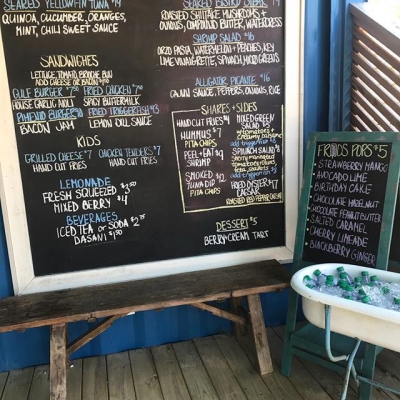 SEARED YELLOWFIN TUNA
QUINOA, CUCUMBER, ORANGES,
MINT, CHILI SWEET SAUCE
SANDWICHES
LETTUCE TOMATO BRIOCHE BUN
ADD CHEESE OR BACON
GULF BURGER FRIED CHICKEN
HOUSE GARLIC AIOLI SPICY BUTTERMILK
PIMENTO BURGER FRIED TRIGGERFISH
BACON JAM LEMON DILL SAUCE
KIDS
GRILLED CHEESE $7 CHICKEN TENDERS $7
HAND CUT FRIES HAND CUT FRIES
LEMONADE
FRESH SQUEEZED $3.50
MIXED BERRY $4
BEVERAGES
ICED TEA or SODA $2.75
DASANI
ROASTED SHIITAKE MUSHROOMS +
ONIONS, COMPOUND BUTTER, WATERCRESS
SHRIMP SALAD $16
ORZO PASTA, WATERMELON + PEACHES, KEY
LIME VINAIGRETTE, SPINACH, MIXED GREENS
ALLIGATOR PICANTE $16
CAJUN SAUCE, PEPPERS, ONIONS, RICE
SHARES + SIDES
HAND CUT FRIES $4
HUMMUS $7
PITA CHIPS
PEEL + EAT
SHRIMP
SMOKED
TUNA DIP
PITA CHIPS
MIXED GREEN
SALAD
SPINACH SALAD
FRIED OYSTER $7
CAESAR
DESSERT $5
BERRY + CREAM TART
FROIDS POPS $5
STRAWBERRY MANGO
AVOCADO LIME
BIRTHDAY CAKE
CHOCOLATE HAZELNUT
CHOCOLATE PEANUT BUTTER
SALTED CARAMEL
CHERRY LIMEADE
BLACKBERRY GINGER